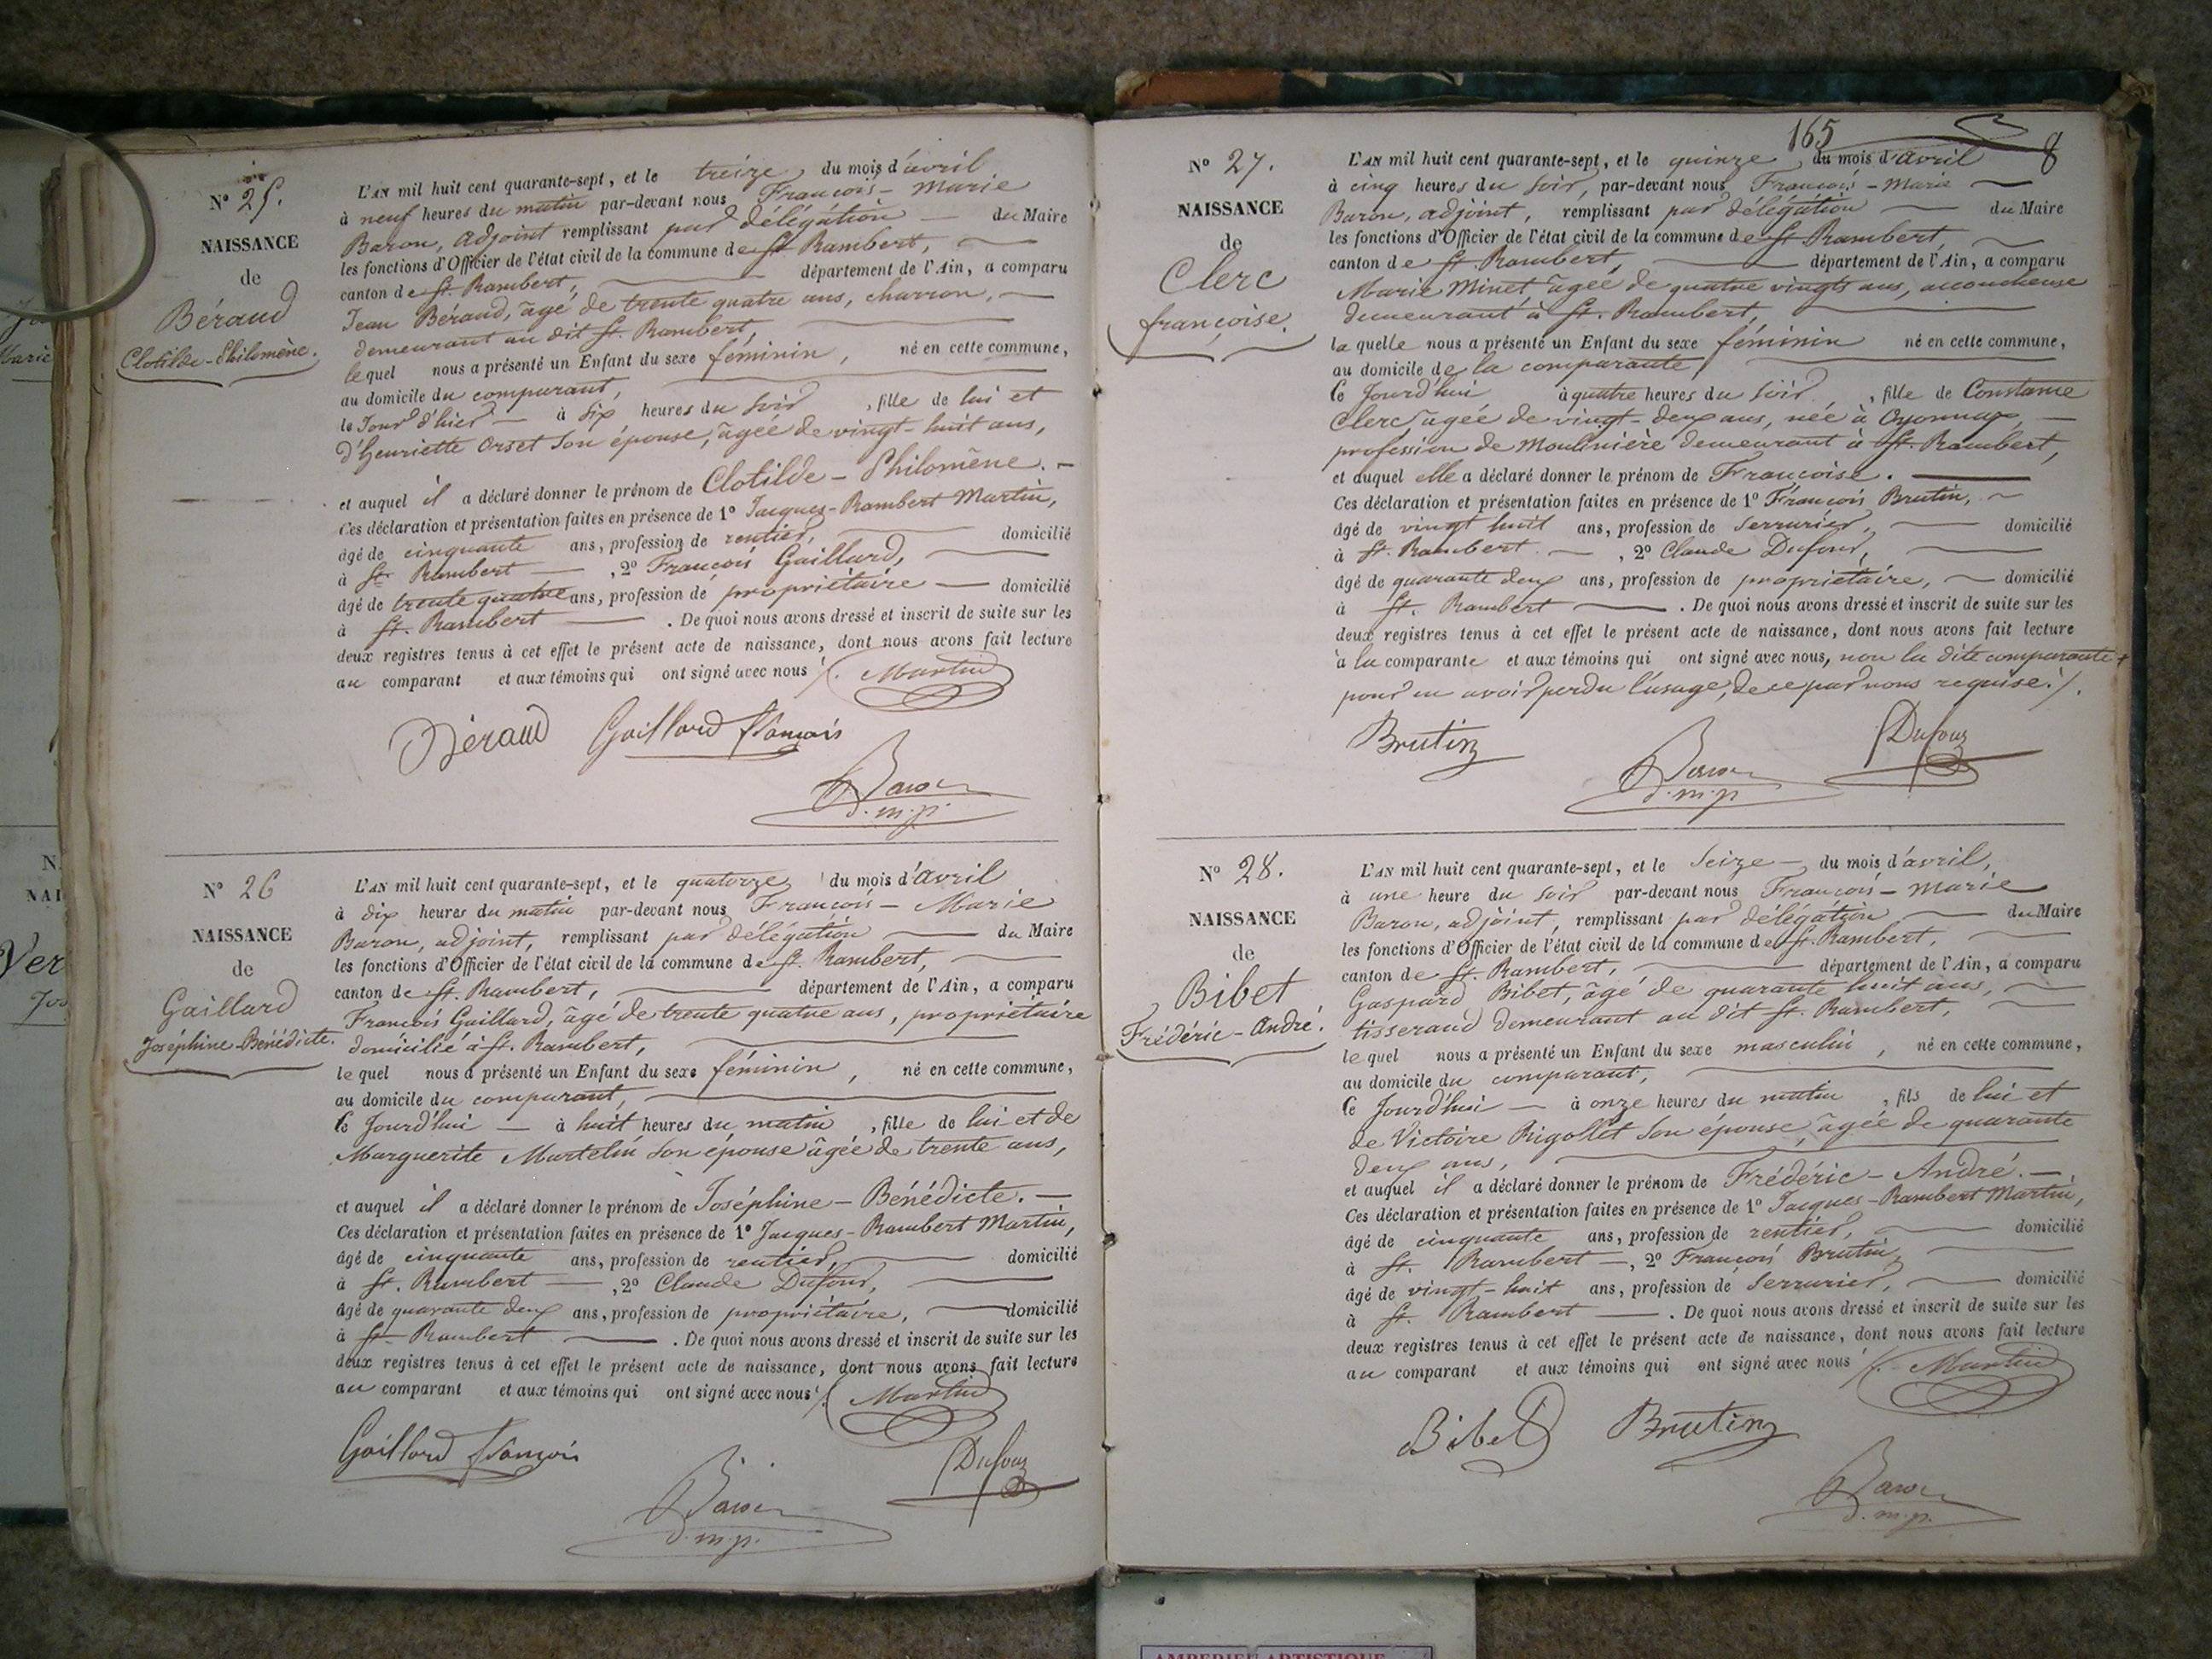 N° 25.
NAISSANCE
de
Béraud
Clotilde-Philomène.
L'AN mil huit cent quarante-sept, et le treize du mois d'avril
à neuf heures du matin par-devant nous François-Marie
Baron, Adjoint remplissant par délégation du Maire
les fonctions d'Officier de l'état civil de la commune de St. Rambert,
canton de St. Rambert, département de l'Ain, a comparu
Jean Béraud, âgé de trente quatre ans, charron,
demeurant au dit St. Rambert,
lequel nous a présenté un Enfant du sexe féminin, né en cette commune,
au domicile du comparant,
le Jour d'hier à six heures du soir, fille de lui et
d'Henriette Orset son épouse, âgée de vingt-huit ans,
et auquel il a déclaré donner le prénom de Clotilde-Philomène.
Ces déclaration et présentation faites en présence de 1° Jacques-Rambert Martin,
âgé de cinquante ans, profession de rentier, domicilié
à St. Rambert, 2° François Gaillard,
âgé de trente quatre ans, profession de propriétaire domicilié
à St. Rambert. De quoi nous avons dressé et inscrit de suite sur les
deux registres tenus à cet effet le présent acte de naissance, dont nous avons fait lecture
au comparant et aux témoins qui ont signé avec nous. Martin
Béraud Gaillard François
Baron
d.m.p.
N° 26
NAISSANCE
de
Gaillard
Joséphine-Bénédicte.
L'AN mil huit cent quarante-sept, et le quatorze du mois d'avril
à dix heures du matin par-devant nous François-Marie
Baron, adjoint, remplissant par délégation du Maire
les fonctions d'Officier de l'état civil de la commune de St. Rambert,
canton de St. Rambert, département de l'Ain, a comparu
François Gaillard, âgé de trente quatre ans, propriétaire
domicilié à St. Rambert,
lequel nous a présenté un Enfant du sexe féminin, né en cette commune,
au domicile du comparant,
le Jourd'hui à huit heures du matin, fille de lui et de
Marguerite Martelin son épouse âgée de trente ans,
et auquel il a déclaré donner le prénom de Joséphine-Bénédicte.
Ces déclaration et présentation faites en présence de 1° Jacques-Rambert Martin,
âgé de cinquante ans, profession de rentier, domicilié
à St. Rambert, 2° Claude Dufour,
âgé de quarante deux ans, profession de propriétaire, domicilié
à St. Rambert. De quoi nous avons dressé et inscrit de suite sur les
deux registres tenus à cet effet le présent acte de naissance, dont nous avons fait lecture
au comparant et aux témoins qui ont signé avec nous. Martin
Gaillard François Dufour
Baron
d.m.p.
165
8
N° 27.
NAISSANCE
de
Clerc
françoise.
L'AN mil huit cent quarante-sept, et le quinze du mois d'avril
à cinq heures du soir, par-devant nous François-Marie
Baron, adjoint, remplissant par délégation du Maire
les fonctions d'Officier de l'état civil de la commune de St. Rambert,
canton de St. Rambert, département de l'Ain, a comparu
Marie Minet, âgée de quatre vingts ans, accoucheuse
demeurant à St. Rambert,
laquelle nous a présenté un Enfant du sexe féminin né en cette commune,
au domicile de la comparante,
le Jourd'hui à quatre heures du soir, fille de Constance
Clerc âgée de vingt-deux ans, née à Oyonnax,
profession de Moulinière demeurant à St. Rambert,
et auquel elle a déclaré donner le prénom de Françoise.
Ces déclaration et présentation faites en présence de 1° François Brutin,
âgé de vingt huit ans, profession de serrurier, domicilié
à St. Rambert, 2° Claude Dufour,
âgé de quarante deux ans, profession de propriétaire, domicilié
à St. Rambert. De quoi nous avons dressé et inscrit de suite sur les
deux registres tenus à cet effet le présent acte de naissance, dont nous avons fait lecture
à la comparante et aux témoins qui ont signé avec nous, non la dite comparante
pour en avoir perdu l'usage, de ce par nous requise.
Brutin Dufour
Baron
d.m.p.
N° 28.
NAISSANCE
de
Bibet
Frédéric-André.
L'AN mil huit cent quarante-sept, et le seize du mois d'avril,
à une heure du soir par-devant nous François-Marie
Baron, adjoint, remplissant par délégation du Maire
les fonctions d'Officier de l'état civil de la commune de St. Rambert,
canton de St. Rambert, département de l'Ain, a comparu
Gaspard Bibet, âgé de quarante huit ans,
tisserand demeurant au dit St. Rambert,
lequel nous a présenté un Enfant du sexe masculin, né en cette commune,
au domicile du comparant,
le Jourd'hui à onze heures du matin, fils de lui et
de Victoire Rigollet son épouse, âgée de quarante
deux ans,
et auquel il a déclaré donner le prénom de Frédéric-André.
Ces déclaration et présentation faites en présence de 1° Jacques-Rambert Martin,
âgé de cinquante ans, profession de rentier, domicilié
à St. Rambert, 2° François Brutin,
âgé de vingt-huit ans, profession de serrurier, domicilié
à St. Rambert. De quoi nous avons dressé et inscrit de suite sur les
deux registres tenus à cet effet le présent acte de naissance, dont nous avons fait lecture
au comparant et aux témoins qui ont signé avec nous. Martin
Bibet Brutin
Baron
d.m.p.
AMBERIEU ARTISTIQUE